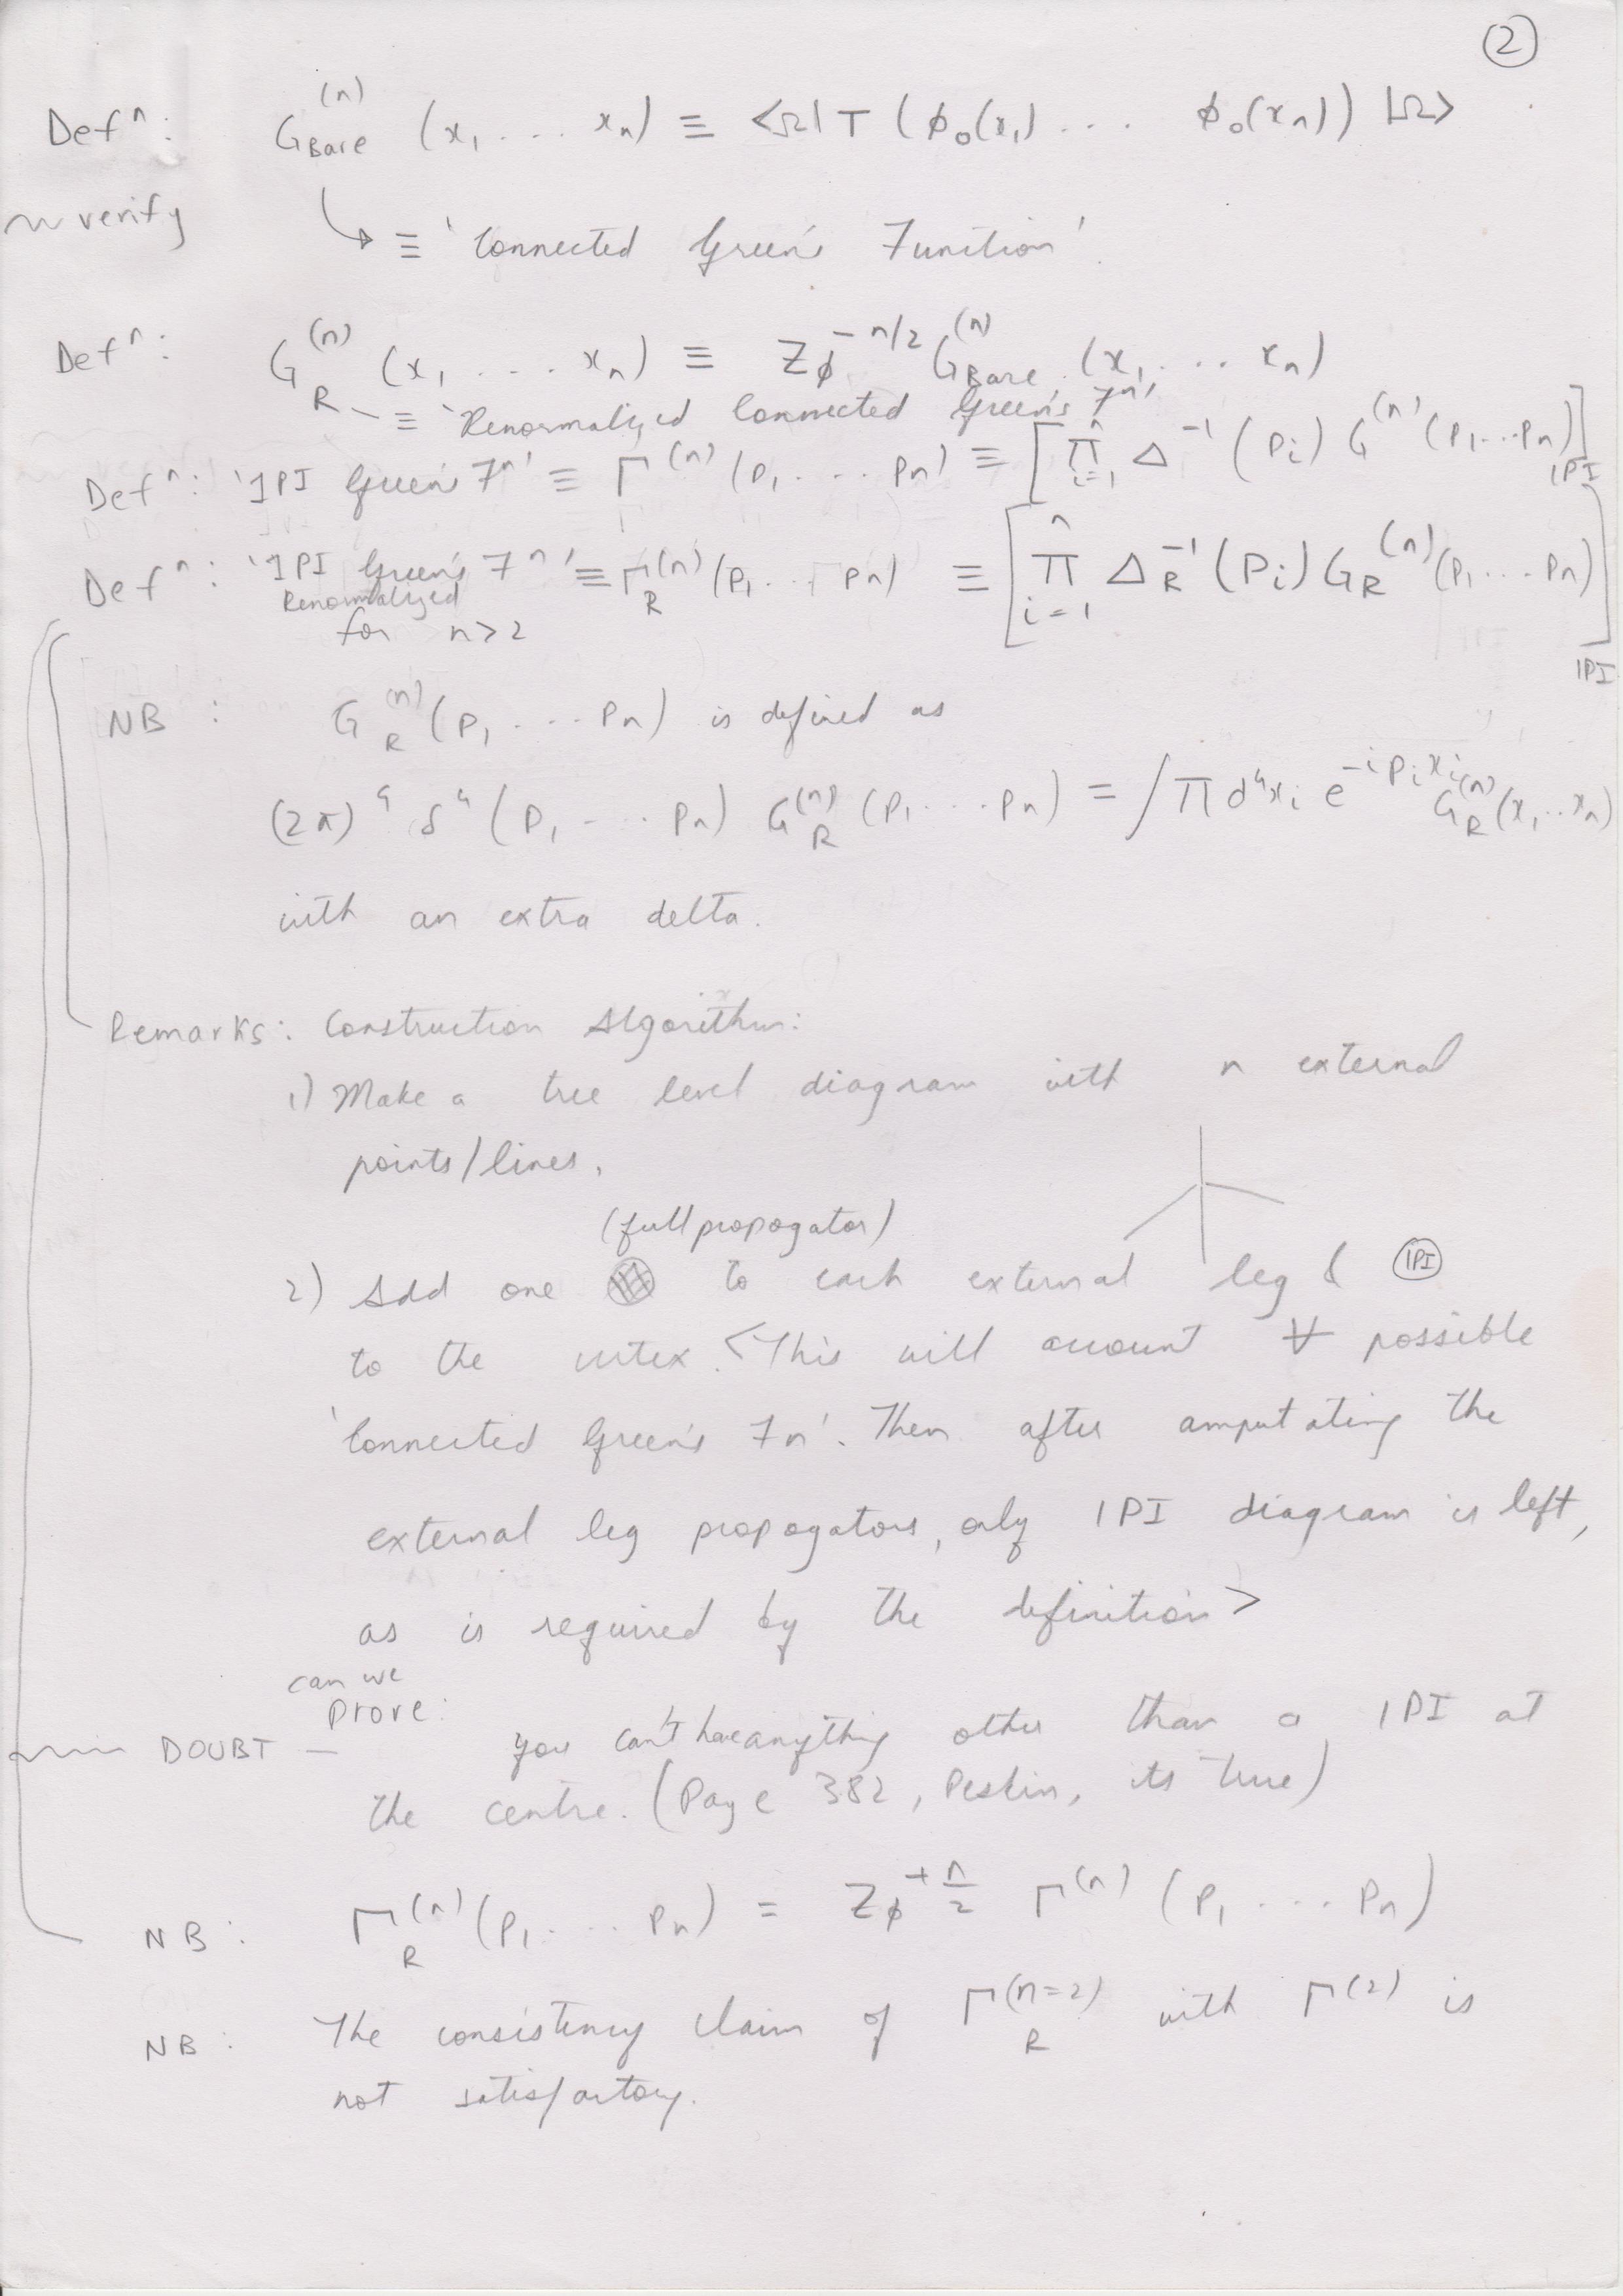 ②
Defⁿ: G_Bare^(n) (x₁ ... xₙ) ≡ <Ω| T (ϕ₀(x₁) ... ϕ₀(xₙ)) |Ω>
~ verify
↳ ≡ 'Connected Green's Function'.
Defⁿ: G_R^(n) (x₁ ... xₙ) ≡ Z_ϕ^(-n/2) G_Bare^(n) (x₁ ... xₙ)
≡ 'Renormalized Connected Green's Fⁿ'
Defⁿ: '1PI Green's Fⁿ' ≡ Γ^(n) (p₁ ... pₙ) ≡ [∏_{i=1}^n Δ^-1 (pᵢ) G^(n) (p₁...pₙ)]_1PI
Defⁿ: '1PI Green's Fⁿ' ≡ Γ_R^(n) (p₁ ... pₙ) ≡ [∏_{i=1}^n Δ_R^-1 (pᵢ) G_R^(n) (p₁...pₙ)]_1PI
Renormalized
for n>2
NB : G_R^(n) (p₁ ... pₙ) is defined as
(2π)⁴ δ⁴ (p₁ ... pₙ) G_R^(n) (p₁ ... pₙ) = ∫ ∏ d⁴xᵢ e^(-i pᵢ xᵢ) G_R^(n) (x₁..xₙ)
with an extra delta.
Remarks: Construction Algorithm:
1) Make a tree level diagram with n external
points/lines.
(full propogator)
2) Add one to each external leg & 1PI
to the vertex. <This will account ∀ possible
'Connected Green's Fn'. Then after amputating the
external leg propogators, only 1PI diagram is left,
as is required by the definition>
can we
prove:
DOUBT — you can't have anything other than a 1PI at
the centre. (Page 382, Peskin, its true)
NB: Γ_R^(n) (p₁ ... pₙ) = Z_ϕ^(+n/2) Γ^(n) (p₁ ... pₙ)
NB: The consistency claim of Γ_R^(n=2) with Γ^(2) is
not satisfactory.